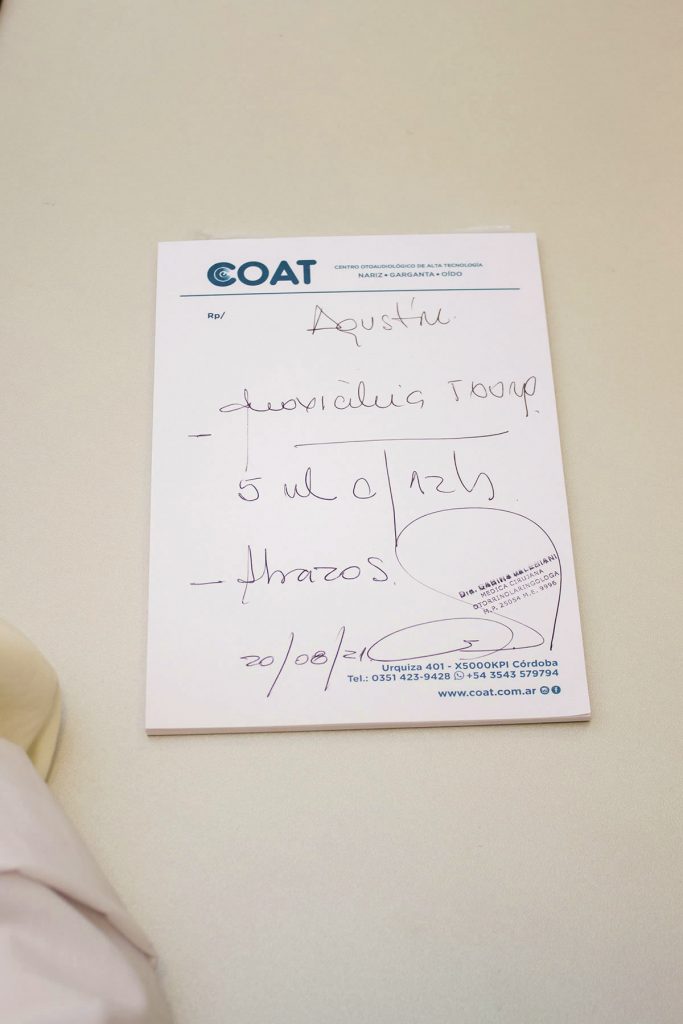 COAT
CENTRO OTOAUDIOLÓGICO DE ALTA TECNOLOGÍA
NARIZ • GARGANTA • OÍDO
Rp/
Agustín.
-
5 ml c/12hs
- Abrazos.
20/08/21
MEDICA CIRUJANA
OTORRINOLARINGOLOGA
M.P. 25054 M.E. 9996
Urquiza 401 - X5000KPI Córdoba
Tel.: 0351 423-9428 +54 3543 579794
www.coat.com.ar